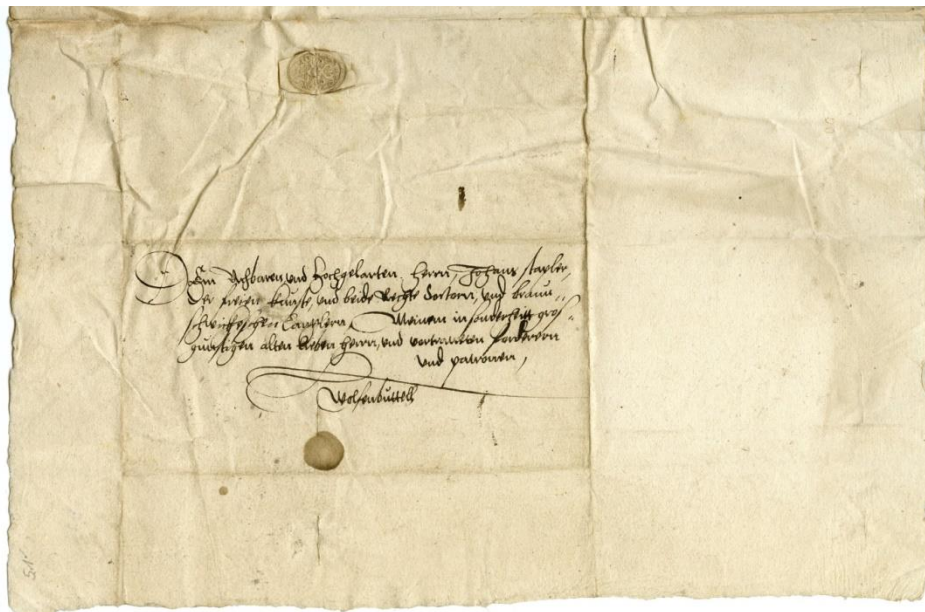 Dem Achbaren und Hochgelarten Herrn, Johann stapler,
der freien künste, und beide Rechte doctorn, und braun„
schwickischen Cantzlern, Meinem in sonderheitt gros„
gunstigen alten lieben Herrn, und vertrauten fordern
und patronen,
Wolfenbuttell
51